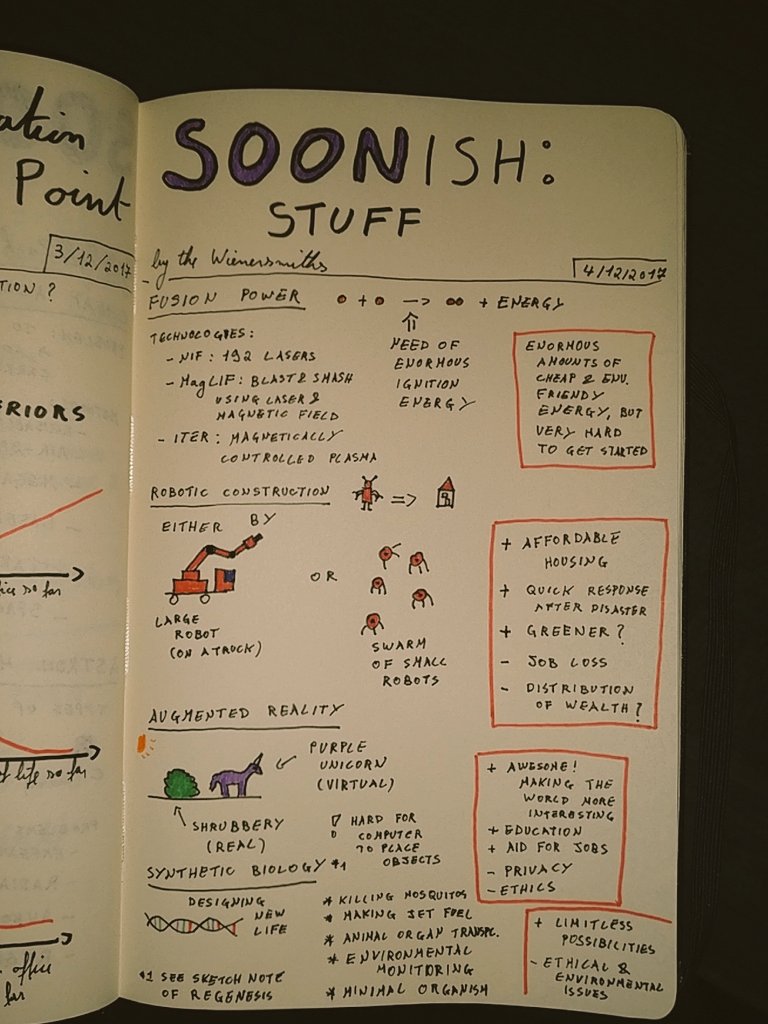 ation
Point
3/12/2017
TION ?
ERIORS
fice so far
of life so far
office
far
SOONISH:
STUFF
by the Wienersmiths
4/12/2017
FUSION POWER
+ → + ENERGY
NEED OF
ENORMOUS
IGNITION
ENERGY
TECHNOLOGIES:
- NIF: 192 LASERS
- MagLIF: BLAST & SMASH
USING LASER &
MAGNETIC FIELD
- ITER: MAGNETICALLY
CONTROLLED PLASMA
ENORMOUS
AMOUNTS OF
CHEAP & ENV.
FRIENDY
ENERGY, BUT
VERY HARD
TO GET STARTED
ROBOTIC CONSTRUCTION
=>
EITHER BY
LARGE
ROBOT
(ON A TRUCK)
OR
SWARM
OF SMALL
ROBOTS
+ AFFORDABLE
HOUSING
+ QUICK RESPONSE
AFTER DISASTER
+ GREENER?
- JOB LOSS
- DISTRIBUTION
OF WEALTH?
AUGMENTED REALITY
PURPLE
UNICORN
(VIRTUAL)
SHRUBBERY
(REAL)
! HARD FOR
COMPUTER
TO PLACE
OBJECTS
+ AWESOME!
MAKING THE
WORLD MORE
INTERESTING
+ EDUCATION
+ AID FOR JOBS
- PRIVACY
- ETHICS
SYNTHETIC BIOLOGY *1
DESIGNING
NEW
LIFE
* KILLING MOSQUITOS
* MAKING JET FUEL
* ANIMAL ORGAN TRANSPL.
* ENVIRONMENTAL
MONITORING
* MINIMAL ORGANISM
+ LIMITLESS
POSSIBILITIES
- ETHICAL &
ENVIRONMENTAL
ISSUES
*1 SEE SKETCH NOTE
OF REGENESIS